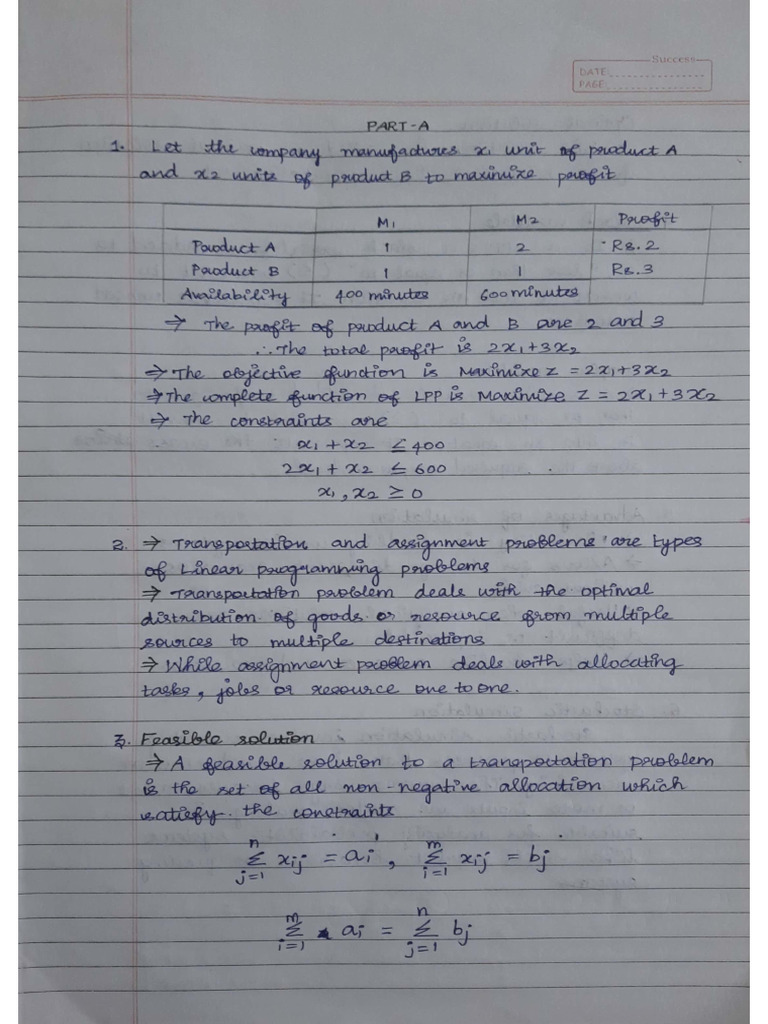 Success
DATE:
PAGE:
PART-A
1. Let the company manufactures x₁ unit of product A
and x2 units of product B to maximize profit
M₁ M2 Profit
Product A 1 2 Rs.2
Product B 1 1 Rs.3
Availability 400 minutes 600 minutes
⇒ The profit of product A and B are 2 and 3
∴ The total profit is 2x₁+3x₂
⇒ The objective function is Maximize Z = 2x₁+3x₂
⇒ The complete function of LPP is Maximize Z = 2x₁+3x₂
⇒ The constraints are
x₁ + x₂ ≤ 400
2x₁ + x₂ ≤ 600
x₁, x₂ ≥ 0
2. ⇒ Transportation and assignment problems are types
of Linear programming problems
⇒ Transportation problem deals with the optimal
distribution of goods or resource from multiple
sources to multiple destinations
⇒ While assignment problem deals with allocating
tasks, jobs or resource one to one.
3. Feasible solution
⇒ A feasible solution to a transportation problem
is the set of all non-negative allocation which
satisfy the constraints
n∑j=1 xij = ai, m∑i=1 xij = bj
m∑i=1 ai = n∑j=1 bj